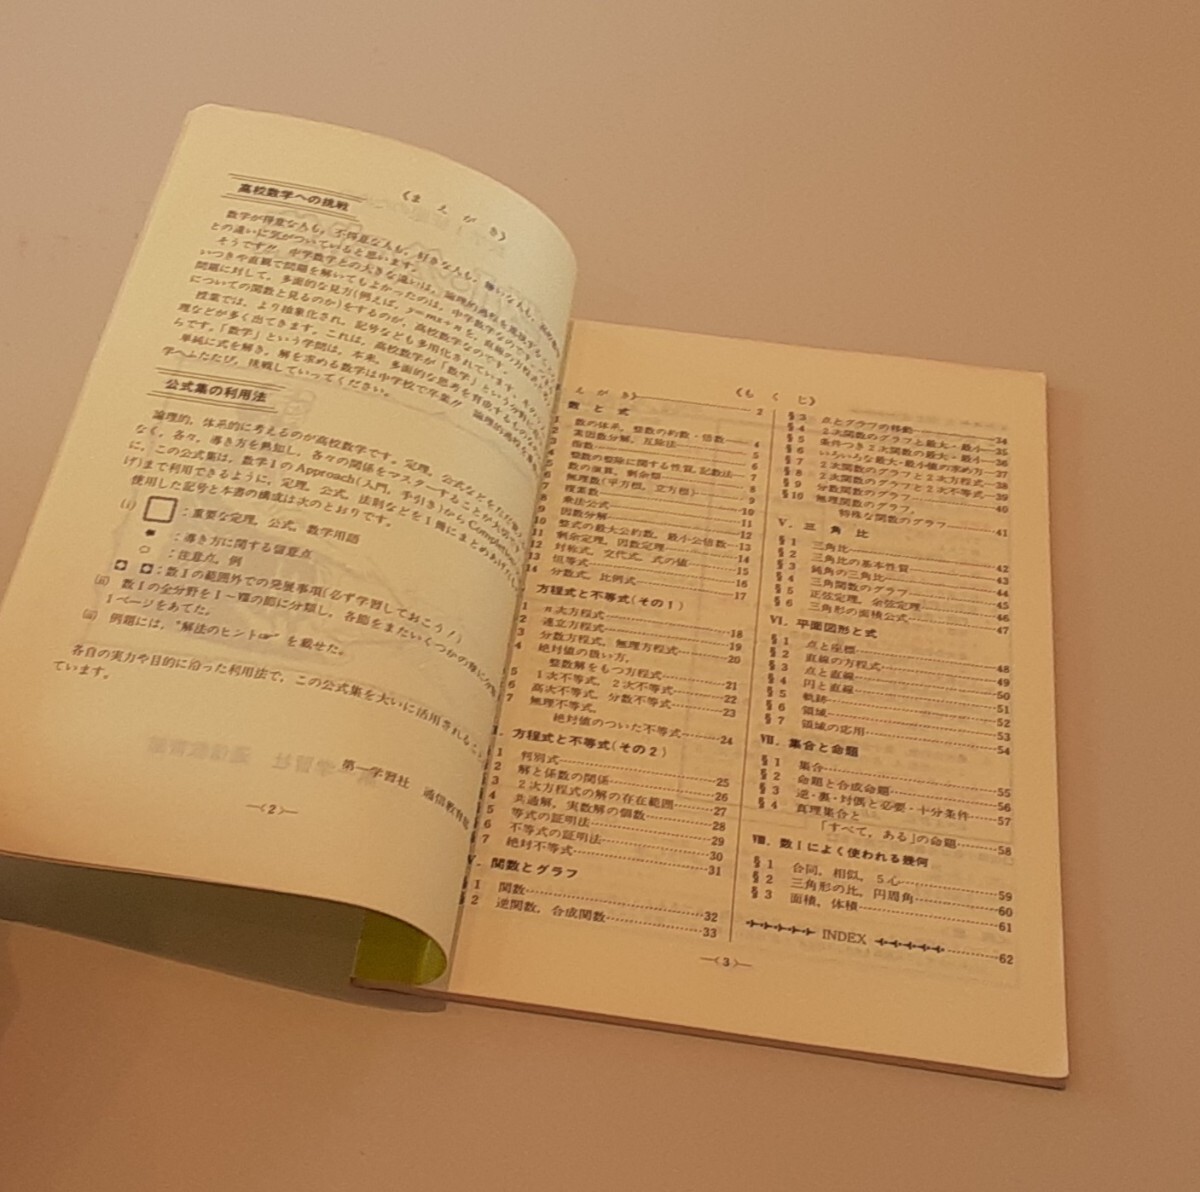 《ま え が き》
高校数学への挑戦
数学が得意な人も，不得意な人も，好きな人も，嫌いな人も，
との違いに気がついていると思います。
そうです!! 中学数学との大きな違いは，論理的過程を重視する
いつきや直観で問題を解いてもよかったのは，中学数学なのです。
問題に対して，多面的な見方(例えば，y=mx+nを，直線の方程式
についての関数と見るのか)をするのが，高校数学なのです。
授業では，より抽象化され，記号なども多用化されています。
理などが多く出てきます。これは，高校数学が「数学」という分野
らです。「数学」という学問は，本来，多面的な思考を育成するもの
単純に式を解き，解を求める数学は中学校で卒業!! 論理的過程を
学へふたたび，挑戦していってください。
公式集の利用法
論理的，体系的に考えるのが高校数学です。定理，公式などをただ
なく，各々，導き方を熟知し，各々の関係をマスターすることが大切
に，この公式集は，数学ⅠのApproach(入門，手引き)からComplete
げ)まで利用できるように，定理，公式，法則などを1冊にまとめあげ
使用した記号と本書の構成は次のとおりです。
(i) ：重要な定理，公式，数学用語
：導き方に関する留意点
：注意点，例
：数Ⅰの範囲外での発展事項(必ず学習しておこう！)
(ii) 数Ⅰの全分野を1〜Ⅷの節に分類し，各節をまたいくつかの
1ページをあてた。
(iii) 例題には，"解法のヒント☞" を載せた。
各自の実力や目的に沿った利用法で，この公式集を大いに活用されること
ています。
第一学習社 通信教育
—〈2〉—
《も く じ》
えがき》 2
数 と 式
数の体系，整数の約数・倍数 4
素因数分解，互除法 5
指数 6
整数の整除に関する性質，記数法 7
数の演算，剰余類 8
無理数(平方根，立方根) 9
複素数 10
乗法公式 11
因数分解 12
整式の最大公約数，最小公倍数 13
剰余定理，因数定理 14
対称式，交代式，式の値 15
恒等式 16
14 分数式，比例式 17
方程式と不等式(その1)
1 n次方程式 18
2 連立方程式 19
3 分数方程式，無理方程式 20
4 絶対値の扱い方，
整数解をもつ方程式 21
5 1次不等式，2次不等式 22
6 高次不等式，分数不等式 23
7 無理不等式，
絶対値のついた不等式 24
方程式と不等式(その2)
1 判別式 25
2 解と係数の関係 26
3 2次方程式の解の存在範囲 27
4 共通解，実数解の個数 28
5 等式の証明法 29
6 不等式の証明法 30
7 絶対不等式 31
関数とグラフ
§1 関数 32
§2 逆関数，合成関数 33
§3 点とグラフの移動 34
§4 2次関数のグラフと最大・最小 35
§5 条件つき2次関数の最大・最小 36
§6 いろいろな最大・最小値の求め方 37
§7 2次関数のグラフと2次方程式 38
§8 2次関数のグラフと2次不等式 39
§9 分数関数のグラフ 40
§10 無理関数のグラフ，
特殊な関数のグラフ 41
Ⅴ．三 角 比
§1 三角比 42
§2 三角比の基本性質 43
§3 鈍角の三角比 44
§4 三角関数のグラフ 45
§5 正弦定理，余弦定理 46
§6 三角形の面積公式 47
Ⅵ．平面図形と式
§1 点と座標 48
§2 直線の方程式 49
§3 点と直線 50
§4 円と直線 51
§5 軌跡 52
§6 領域 53
§7 領域の応用 54
Ⅶ．集合と命題
§1 集合 55
§2 命題と合成命題 56
§3 逆・裏・対偶と必要・十分条件 57
§4 真理集合と
「すべて，ある」の命題 58
Ⅷ．数Ⅰによく使われる幾何
§1 合同，相似，5心 59
§2 三角形の比，円周角 60
§3 面積，体積 61
INDEX 62
—〈3〉—